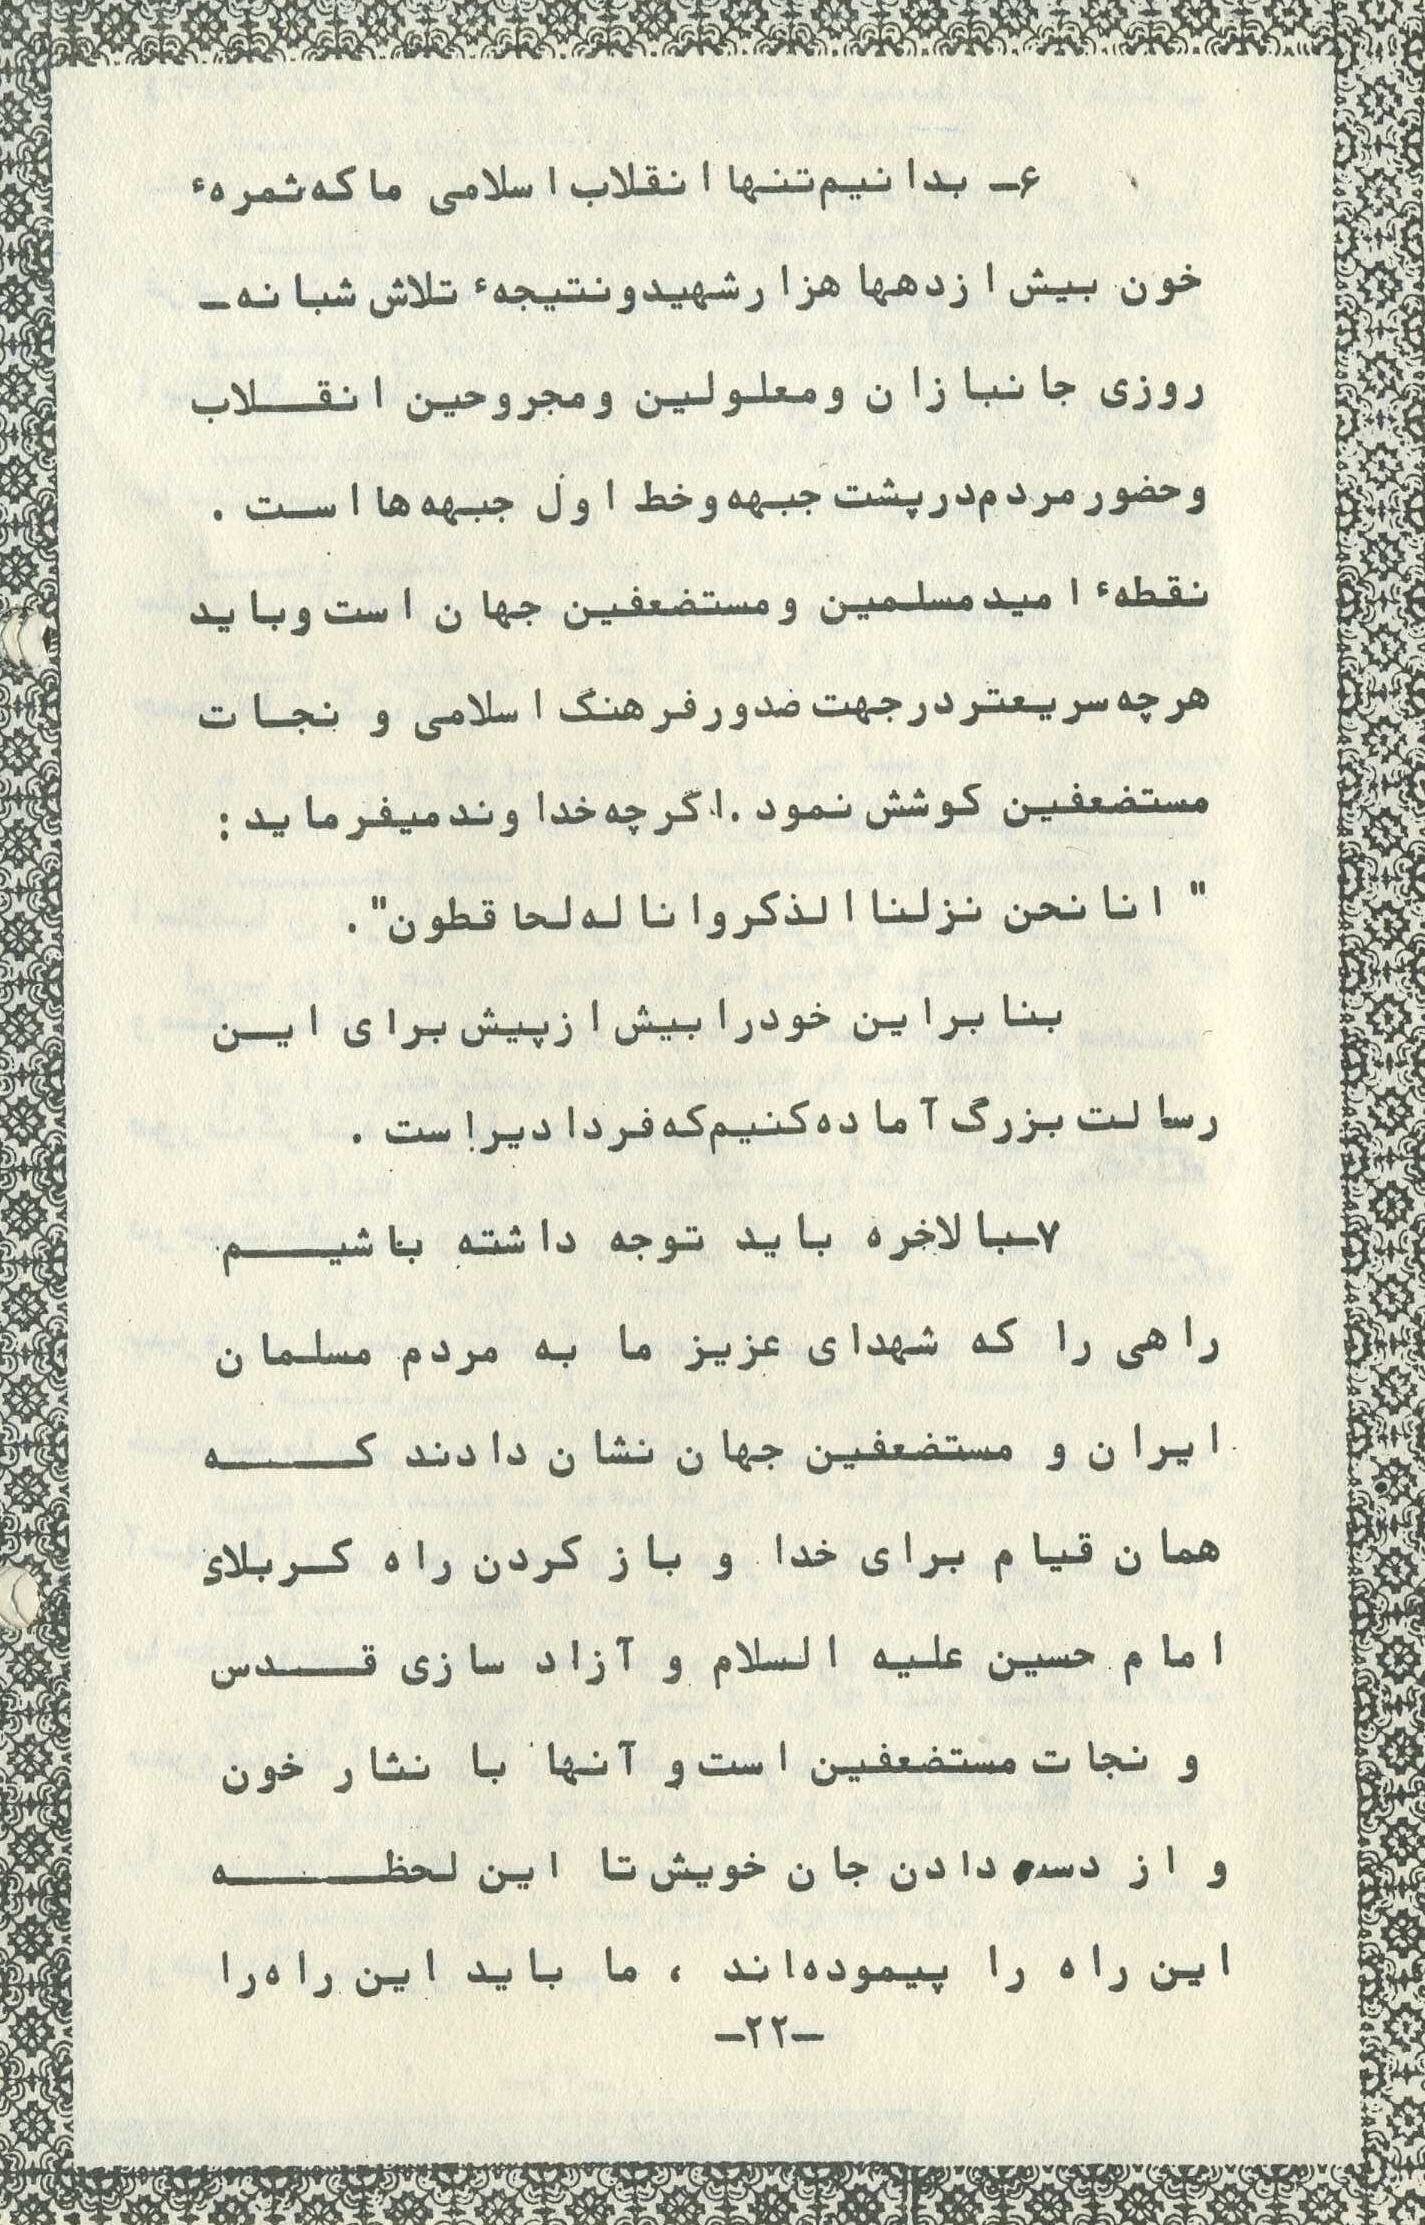 ۶ـ بدانیم تنها انقلاب اسلامی ما که ثمرهء
خون بیش از دهها هزار شهید و نتیجهء تلاش شبانه ـ
روزی جانبازان و معلولین و مجروحین انقـــلاب
و حضور مردم در پشت جبهه و خط اول جبهه ها اســت .
نقطهء امید مسلمین و مستضعفین جهان است و باید
هر چه سریعتر در جهت صدور فرهنگ اسلامی و نجــات
مستضعفین کوشش نمود . اگر چه خداوند میفرماید :
" انا نحن نزلنا الذکر وانا له لحا قطون" .
بنابراین خود را بیش از پیش برای ایــن
رسالت بزرگ آماده کنیم که فردا دیر است .
۷ـ بالاخره باید توجه داشته باشیـــــم
راهی را که شهدای عزیز ما به مردم مسلمان
ایران و مستضعفین جهان نشان دادند کـــــه
همان قیام برای خدا و باز کردن راه کــربلای
امام حسین علیه السلام و آزاد سازی قــــدس
و نجات مستضعفین است و آنها با نثار خون
و از دست دادن جان خویش تا این لحظـــــه
این راه را پیموده‌اند ، ما باید این راه را
ـ۲۲ـ